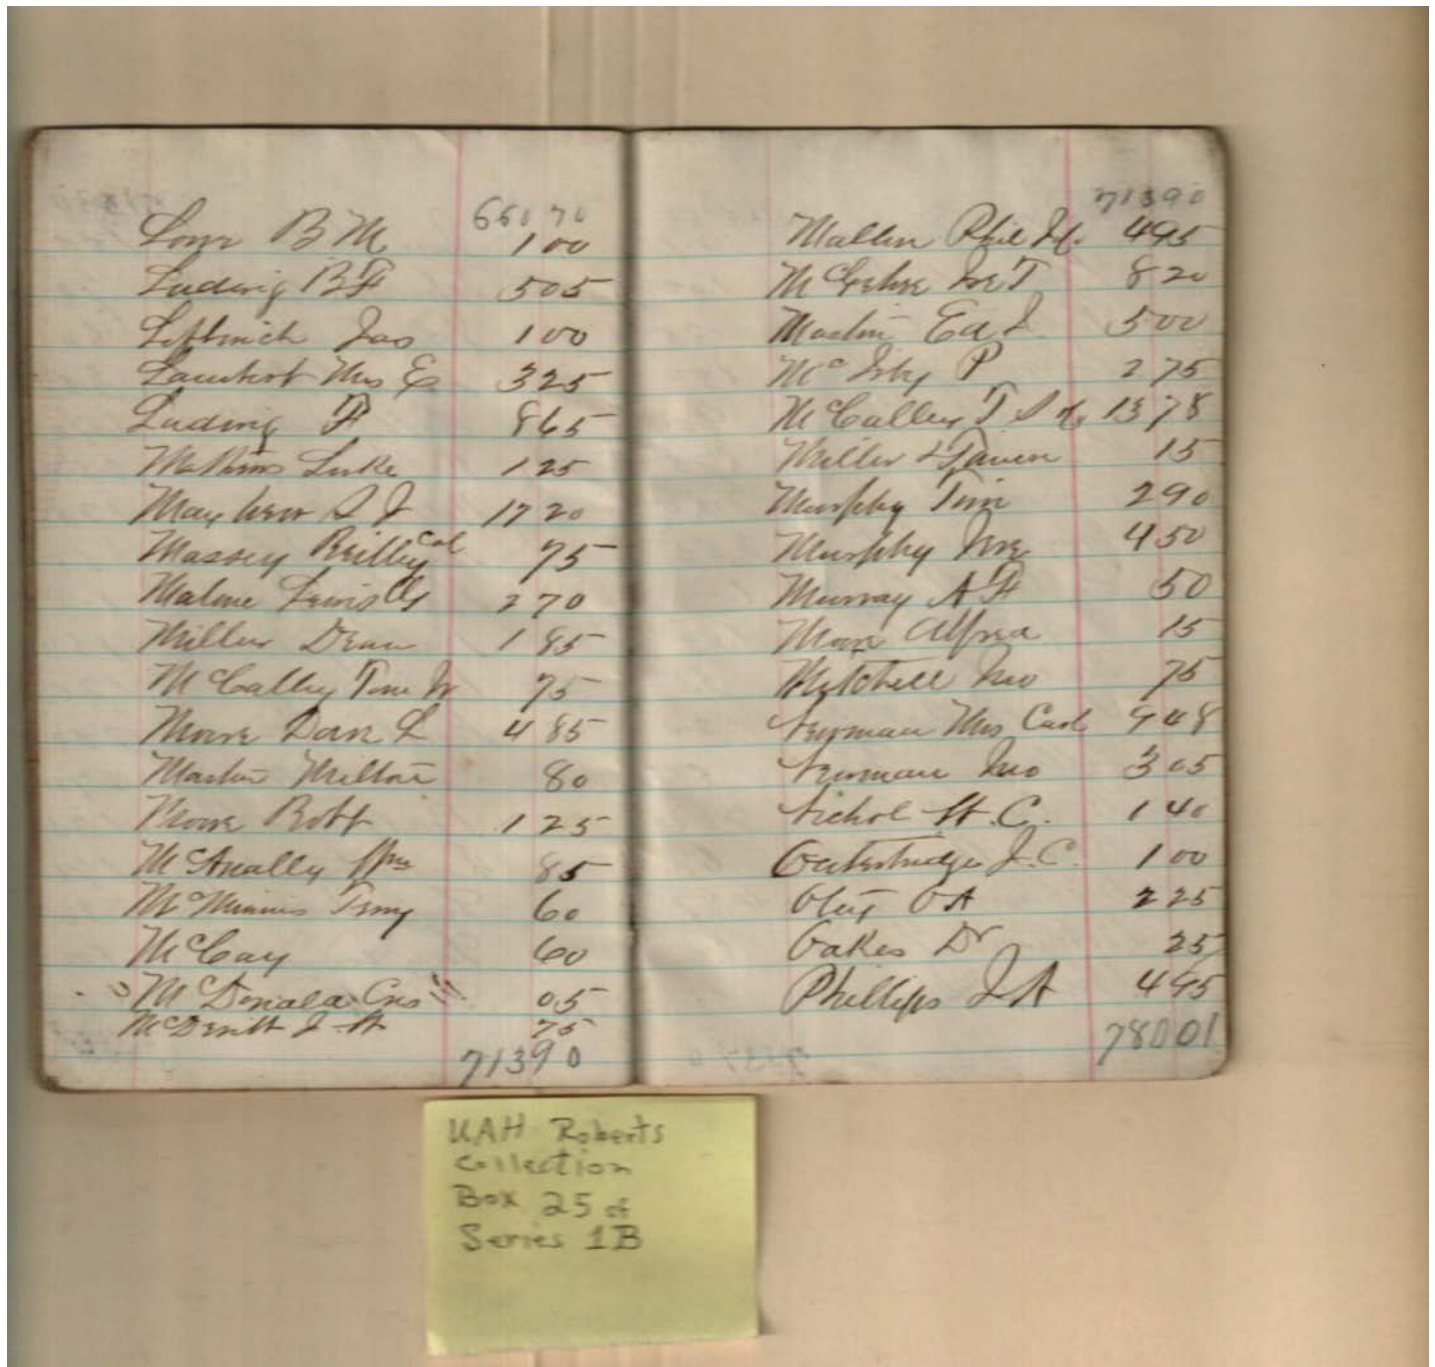 66070
Love B M 100
Ludwig B F 505
Leftwich Jas 100
Lambert Mrs E 325
Ludwig F 865
Mathews Luke 125
Mayhew S J 1720
Massey Reilly Col 75
Malone Lewis 270
Miller Dean 185
McCalley Tom Jr 75
Moore Dave L 485
Martin Milton 80
Moore Robt 125
McAnally Wm 85
McMinnis Temy 60
McCay 60
McDonald 05
McDevitt J H 75
71390
71390
Mallin Phil 495
McGehee T 820
Martin Ed 500
Mc P 275
McCalley T S 1378
Miller & 15
Murphy Tim 290
Murphy Jno 450
Murray A F 50
Moore Alfred 15
Mitchell Jno 75
Newman Mrs Carl 948
Newman Jno 305
Nichol H. C. 140
Outerbridge J. C. 100
O A 225
Oakes Dr 25
Phillips J A 495
78001
UAH Roberts
Collection
Box 25 of
Series 1B